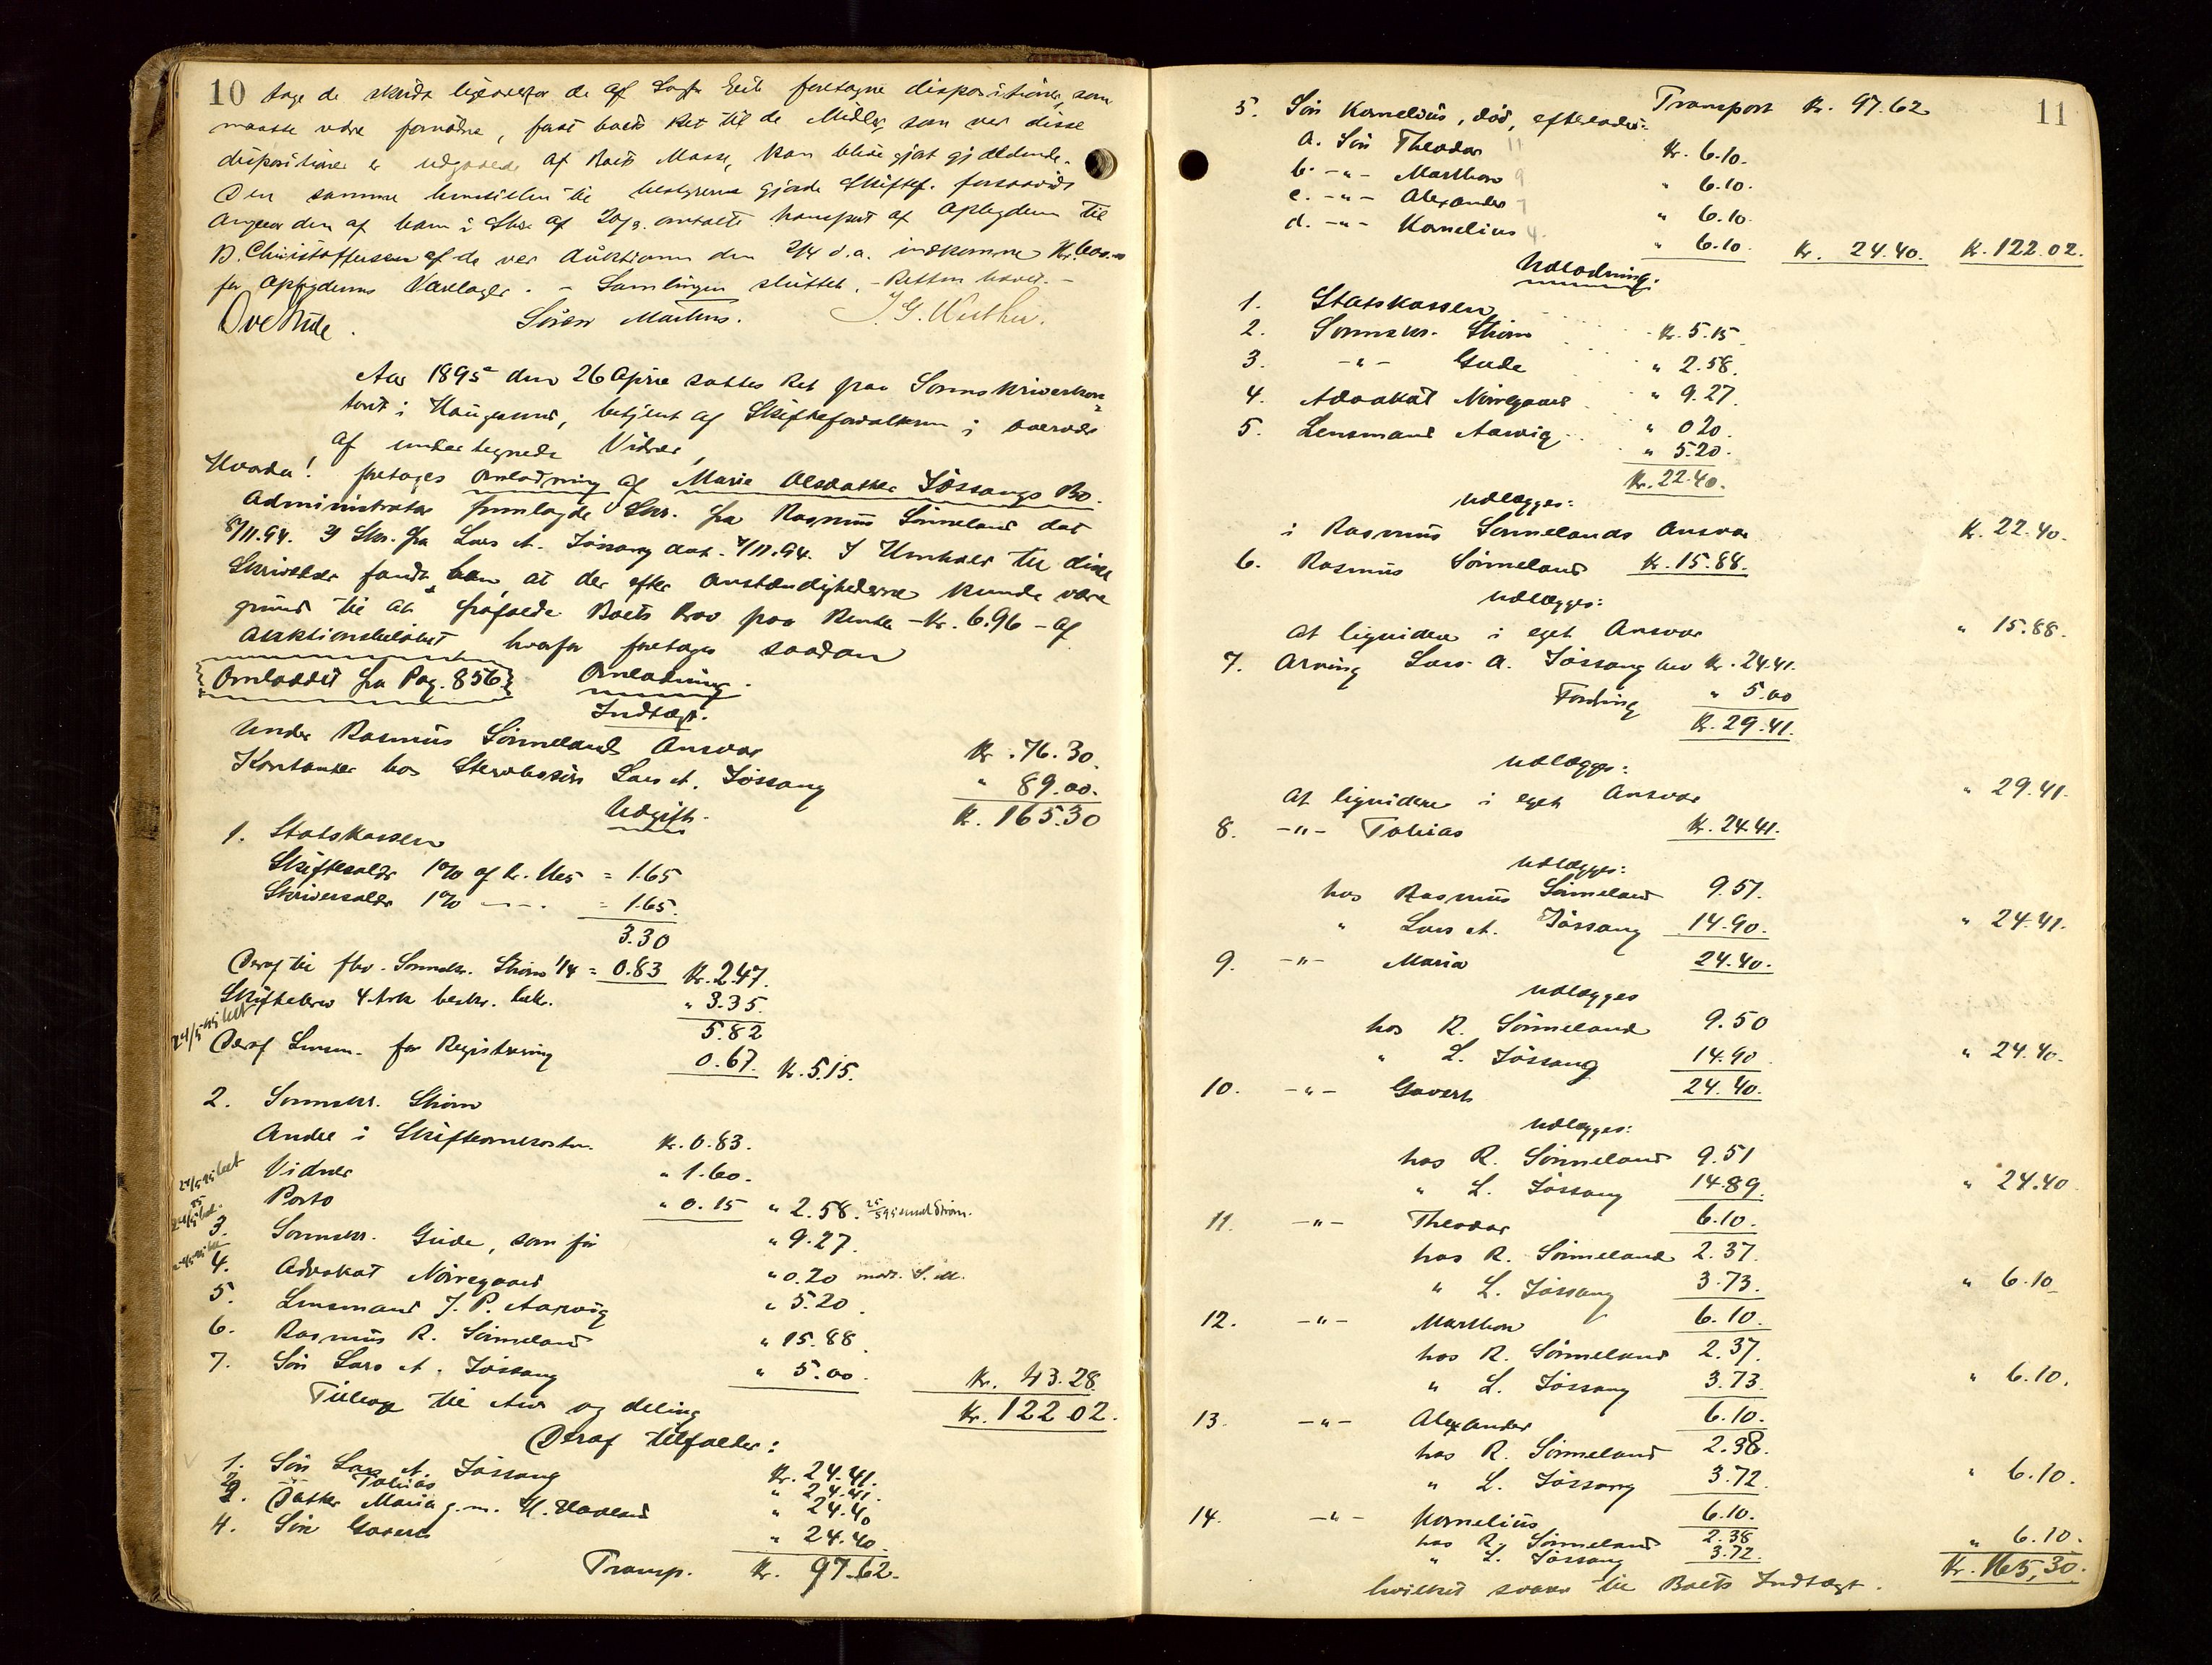 10 tage de skridt ligeoverfor de af Sagf. Eide foretagne dispositioner, som
maatte være fornødne, forat boets Ret til de Midler, som ved disse
dispositioner er udgaaede af Boets Masse, kan blive gjort gjældende.
Den samme henstillen til bestyrerne gjorde Skiftef. forsaavidt
angaar den af ham i Skr. af 20/3. omtalte transport af Aplygdens til
B. Christoffersen af de ved Auktionen den 2/4 d.a. indkomne Kr. 600.00
for Varelager. - Samlingen sluttet. - Retten hævet. -
Ove Eide. Sören Martens. J. G. Werther.
Aar 1895 den 26 April sattes Ret paa Sorenskriverkon-
toret i Haugesund, betjent af Skifteforvalteren i overvær
af undertegnede Vidner,
Hvorda! foretages Omlodning af Marie Olsdatter Jössangs Bo.
Administrator fremlagde Skr. fra Rasmus Sönneland dat
8/11.94. og Skr. fra Lars A. Jössang dat. 7/11.94. I Henhold til disse
Skrivelser fandt han, at der efter Omstændighederne kunde være
grund til at frafalde Boets Krav paa Renter - Kr. 6.96 - af
Auktionsbelöbet hvorfor foretages saadan
Omloddet fra Pag. 856 Omlodning.
Indtægt.
Under Rasmus Sönnelands Ansvar Kr. 76.30.
Kontanter hos Stervbosön Lars A. Jössang " 89.00.
Kr. 165.30
Udgift.
1. Statskassen
Skiftesalær 1% af Kr. 165 = 1.65
Skriversalær 1% - - - = 1.65.
3.30
Deraf til fhv. Sorenskr. Ström 1/4 = 0.83 Kr. 2.47.
Skiftebrev 4 Ark beskr. " 3.35.
5.82
Deraf Lensm. for Registrering 0.67. Kr. 5.15.
2. Sorenskr. Ström
Andel i Skifteomkostn. Kr. 0.83.
Vidner " 1.60.
Porto " 0.15 " 2.58.
3. Sorenskr. Gude, som för " 9.27.
4. Advokat Nörregaard " 0.20
5. Lensmand J. P. Aarvig " 5.20.
6. Rasmus R. Sönneland " 15.88.
7. Sön Lars A. Jössang " 5.00. Kr. 43.28.
Tilbage til Arv og deling Kr. 122.02.
Deraf tilfalder:
1. Sön Lars A. Jössang Kr. 24.41.
2. -"- Tobias " 24.41.
3. Datter Maria g.m. H. Haaland " 24.40
4. Sön Govert " 24.40.
Transp. Kr. 97.62.
11
Transport Kr. 97.62
5. Sön Kornelius, död, efterladt:
a. Sön Theodor 11 Kr. 6.10.
b. -"- Marthon 9 " 6.10.
c. -"- Alexander 7 " 6.10.
d. -"- Kornelius 4. " 6.10. Kr. 24.40. Kr. 122.02.
Udlodning.
1. Statskassen Kr. 5.15
2. Sorenskr. Ström " 2.58.
3. -"- Gude " 9.27.
4. Advokat Nörregaard " 0.20.
5. Lensmand Aarvig " 5.20.
Kr. 22.40.
Udlægges:
i Rasmus Sönnelands Ansvar Kr. 22.40.
6. Rasmus Sönneland Kr. 15.88.
Udlægges:
At liquidere i eget Ansvar " 15.88.
7. Arving Lars A. Jössang Arv Kr. 24.41.
Fordring " 5.00
Kr. 29.41.
Udlægges:
At liquidere i eget Ansvar " 29.41.
8. -"- Tobias Kr. 24.41.
Udlægges:
hos Rasmus Sönneland 9.51.
" Lars A. Jössang 14.90. " 24.41.
9. -"- Maria 24.40.
Udlægges
hos R. Sönneland 9.50
" L. Jössang 14.90. " 24.40.
10. -"- Govert 24.40.
Udlægges:
hos R. Sönneland 9.51
" L. Jössang 14.89. " 24.40
11. -"- Theodor 6.10.
hos R. Sönneland 2.37.
" L. Jössang 3.73. " 6.10
12. -"- Marthon 6.10.
hos R. Sönneland 2.37.
" L. Jössang 3.73. " 6.10.
13. -"- Alexander 6.10.
hos R. Sönneland 2.38.
" L. Jössang 3.72. " 6.10.
14. -"- Kornelius 6.10.
hos R. Sönneland 2.38
" L. Jössang 3.72. " 6.10.
Kr. 165,30.
hvilket svarer til Boets Indtægt.